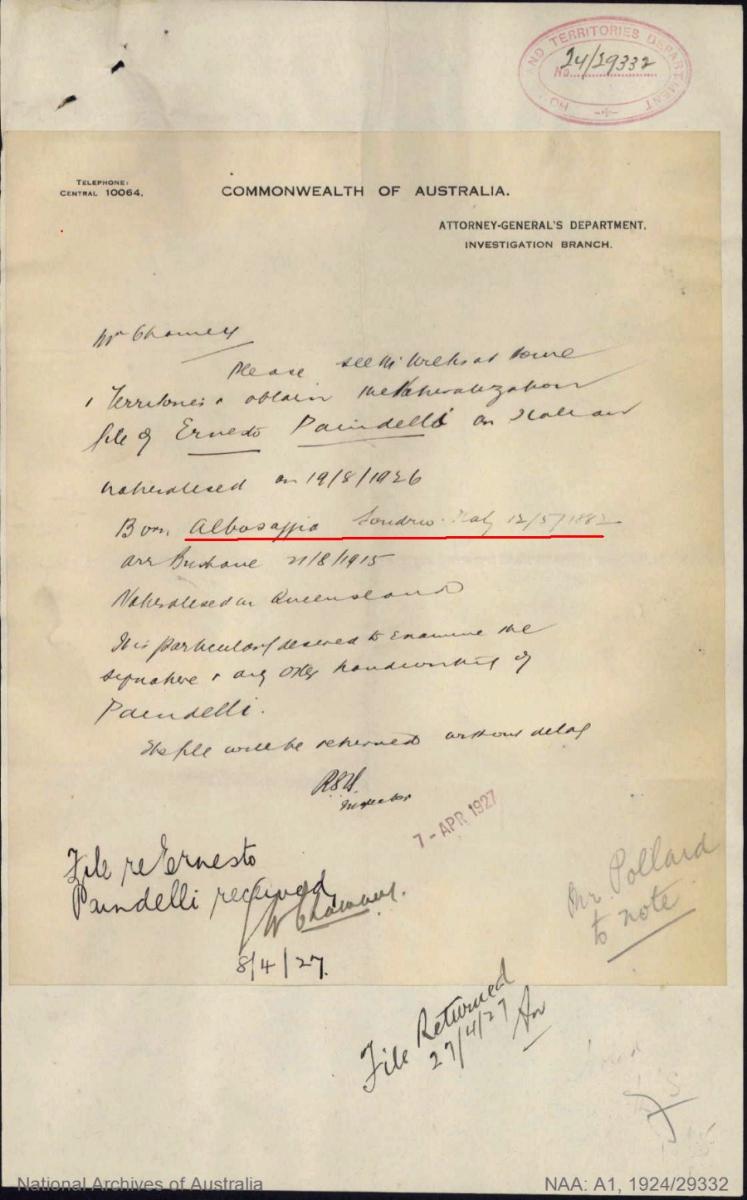 HOME AND TERRITORIES DEPARTMENT
No. 24/29332
TELEPHONE:
CENTRAL 10064.
COMMONWEALTH OF AUSTRALIA.
ATTORNEY-GENERAL'S DEPARTMENT.
INVESTIGATION BRANCH.
Mr
Please see Mr at Home
& Territories & obtain the Naturalization
file of Ernesto Paindelli an Italian
naturalised on 19/8/1926
Born Albosaggia Sondrio Italy 12/5/1882
arr Brisbane 21/8/1915
Naturalised in Queensland
It is particularly desired to examine the
signature & any other handwriting of
Paindelli.
The file will be returned without delay
Inspector
7-APR 1927
File re Ernesto
Paindelli received
8/4/27.
Mr. Pollard
to note
File Returned
27/4/27
National Archives of Australia
NAA: A1, 1924/29332